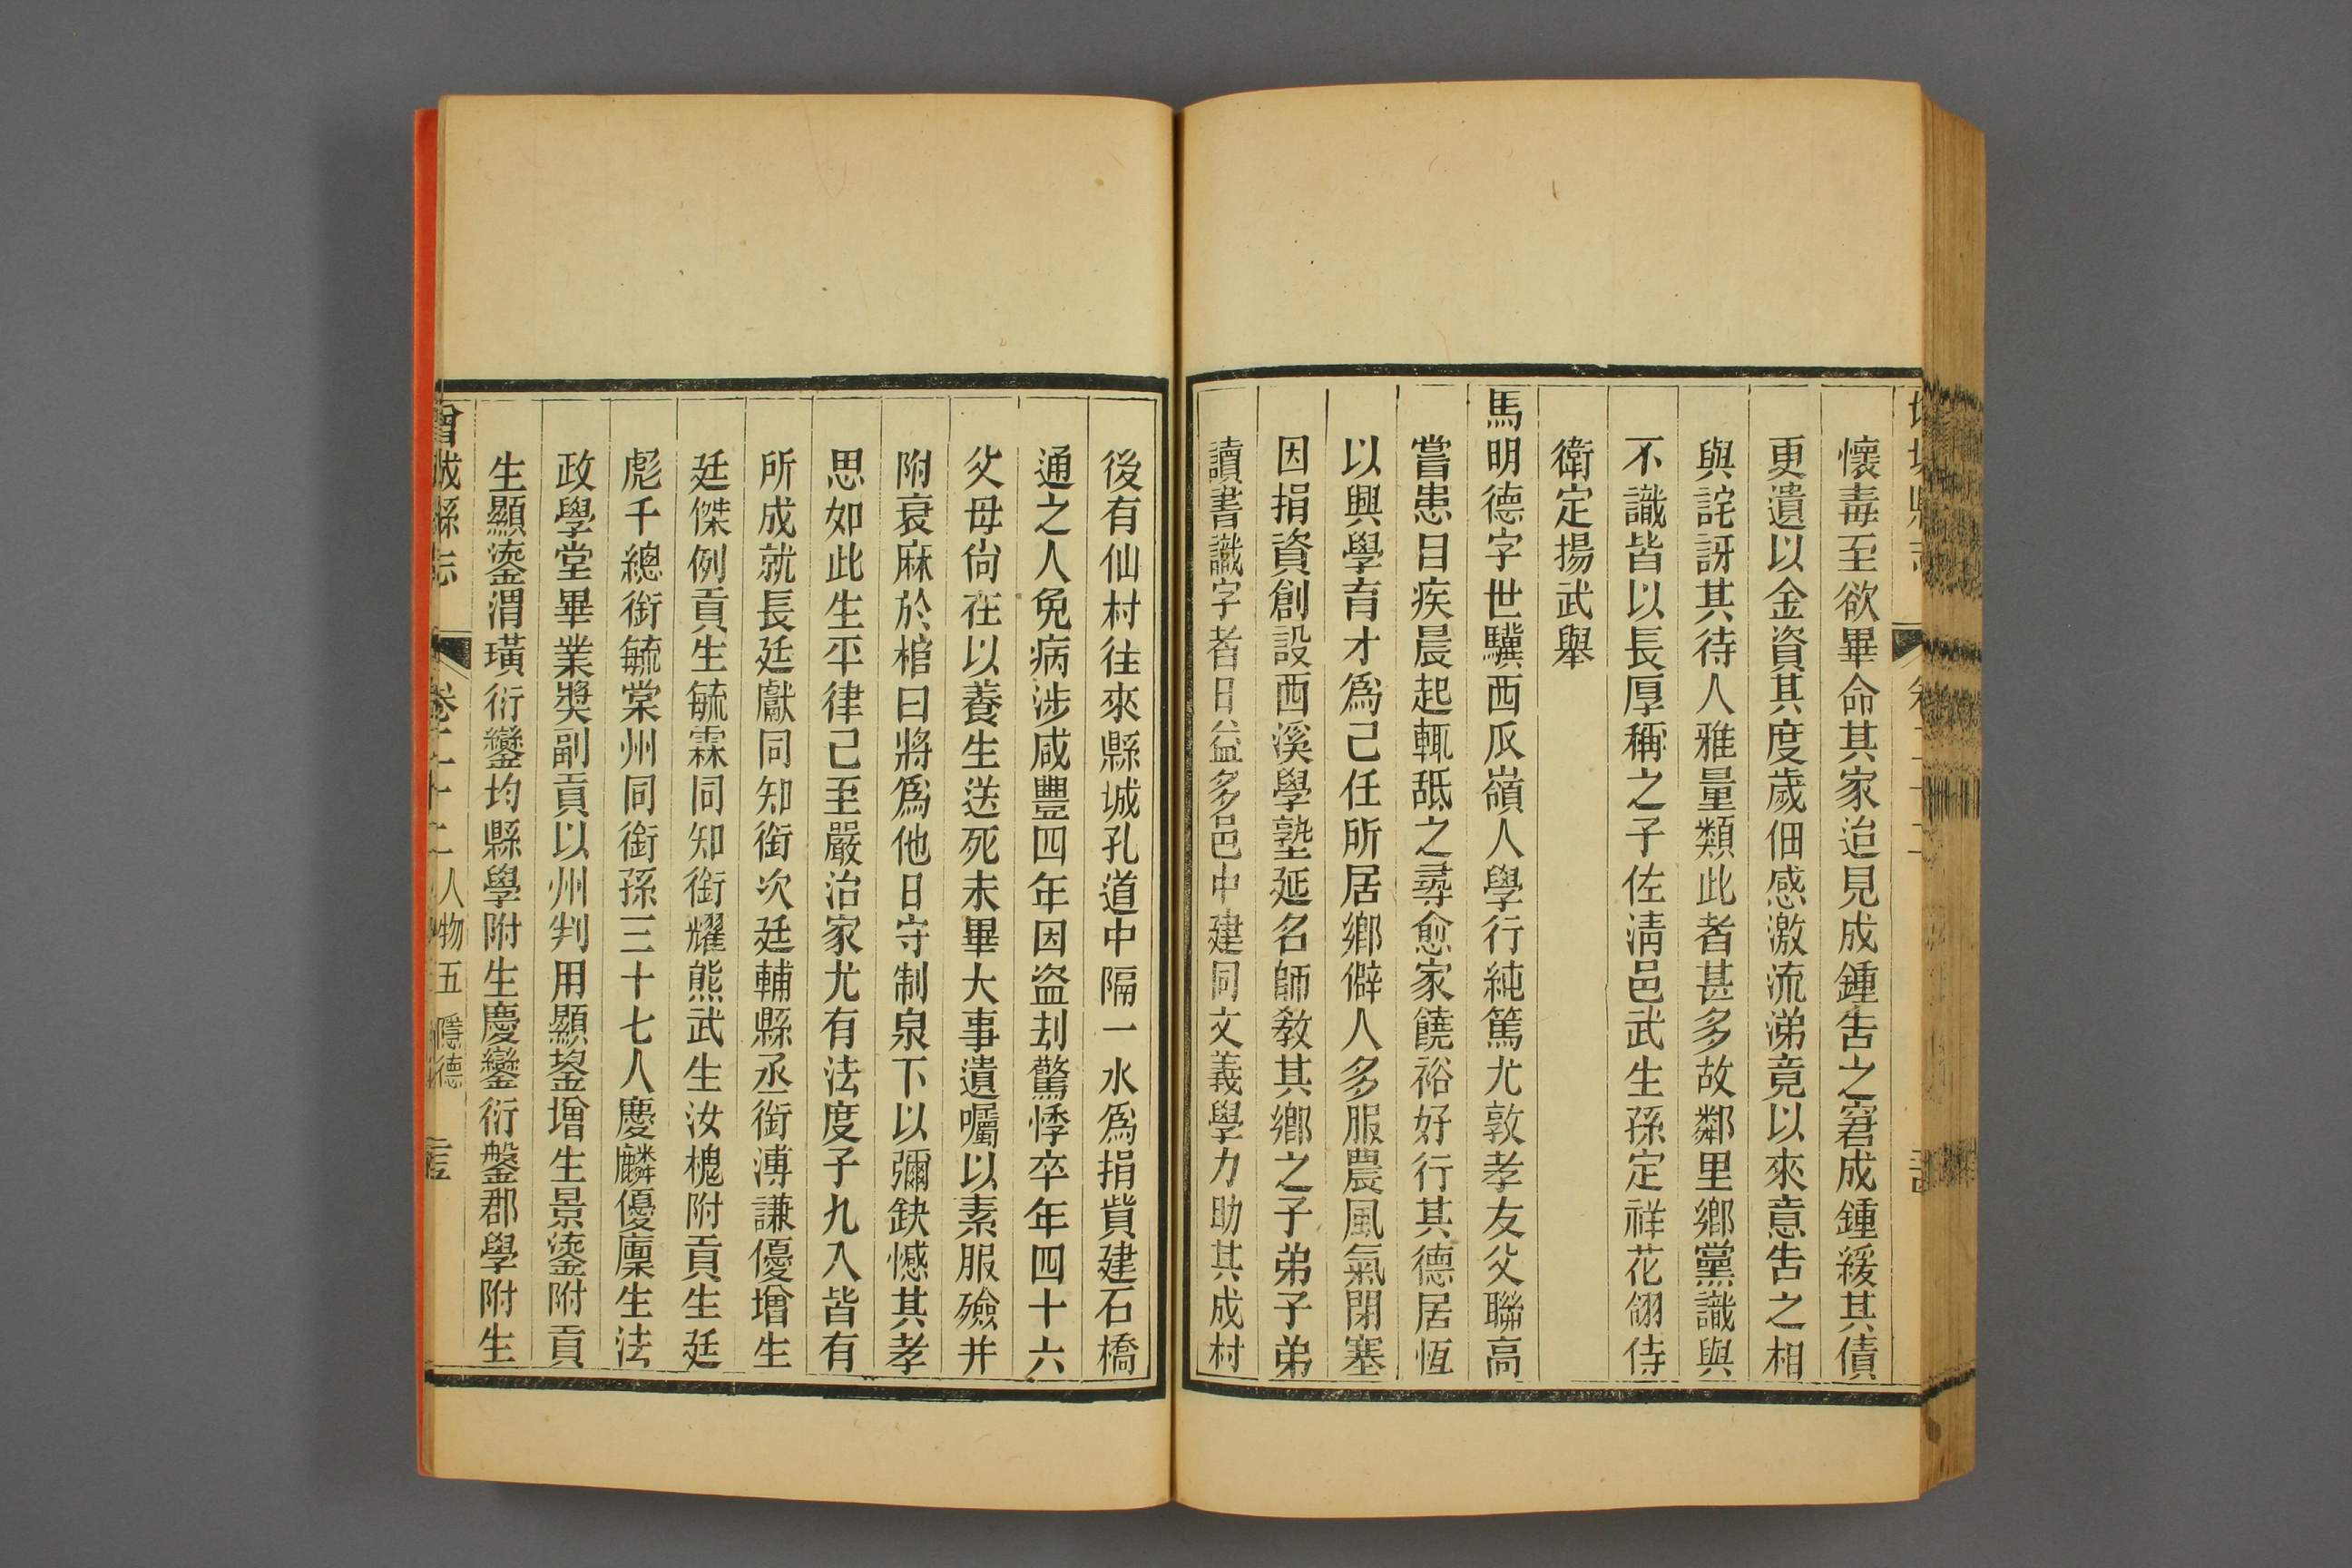 懷毒至欲畢命其家迨見成鍾吿之窘成鍾緩其債
更遺以金資其度歲佃感激流涕竟以來意吿之相
與詫訝其待人雅量類此者甚多故鄰里鄉黨識與
不識皆以長厚稱之子佐淸邑武生孫定祥花翎侍
衛定揚武舉
馬明德字世驥西瓜嶺人學行純篤尤敦孝友父聯高
嘗患目疾晨起輒舐之尋愈家饒裕好行其德居恆
以興學育才爲己任所居鄉僻人多服農風氣閉塞
因捐資創設西溪學塾延名師敎其鄉之子弟子弟
讀書識字者日益多邑中建同文義學力助其成村
後有仙村往來縣城孔道中隔一水爲捐貲建石橋
通之人免病涉咸豐四年因盜刦驚悸卒年四十六
父母尙在以養生送死未畢大事遺囑以素服殮并
附衰麻於棺曰將爲他日守制泉下以彌缺憾其孝
思如此生平律己至嚴治家尤有法度子九人皆有
所成就長廷獻同知銜次廷輔縣丞銜溥謙優增生
廷傑例貢生毓霖同知銜耀熊武生汝槐附貢生廷
彪千總銜毓棠州同銜孫三十七人慶麟優廩生法
政學堂畢業獎副貢以州判用顯鋆增生景鎏附貢
生顯鎏渭璜衍鑾均縣學附生慶鑾衍鎜郡學附生
曾城縣志 卷二十二 人物五 隱德